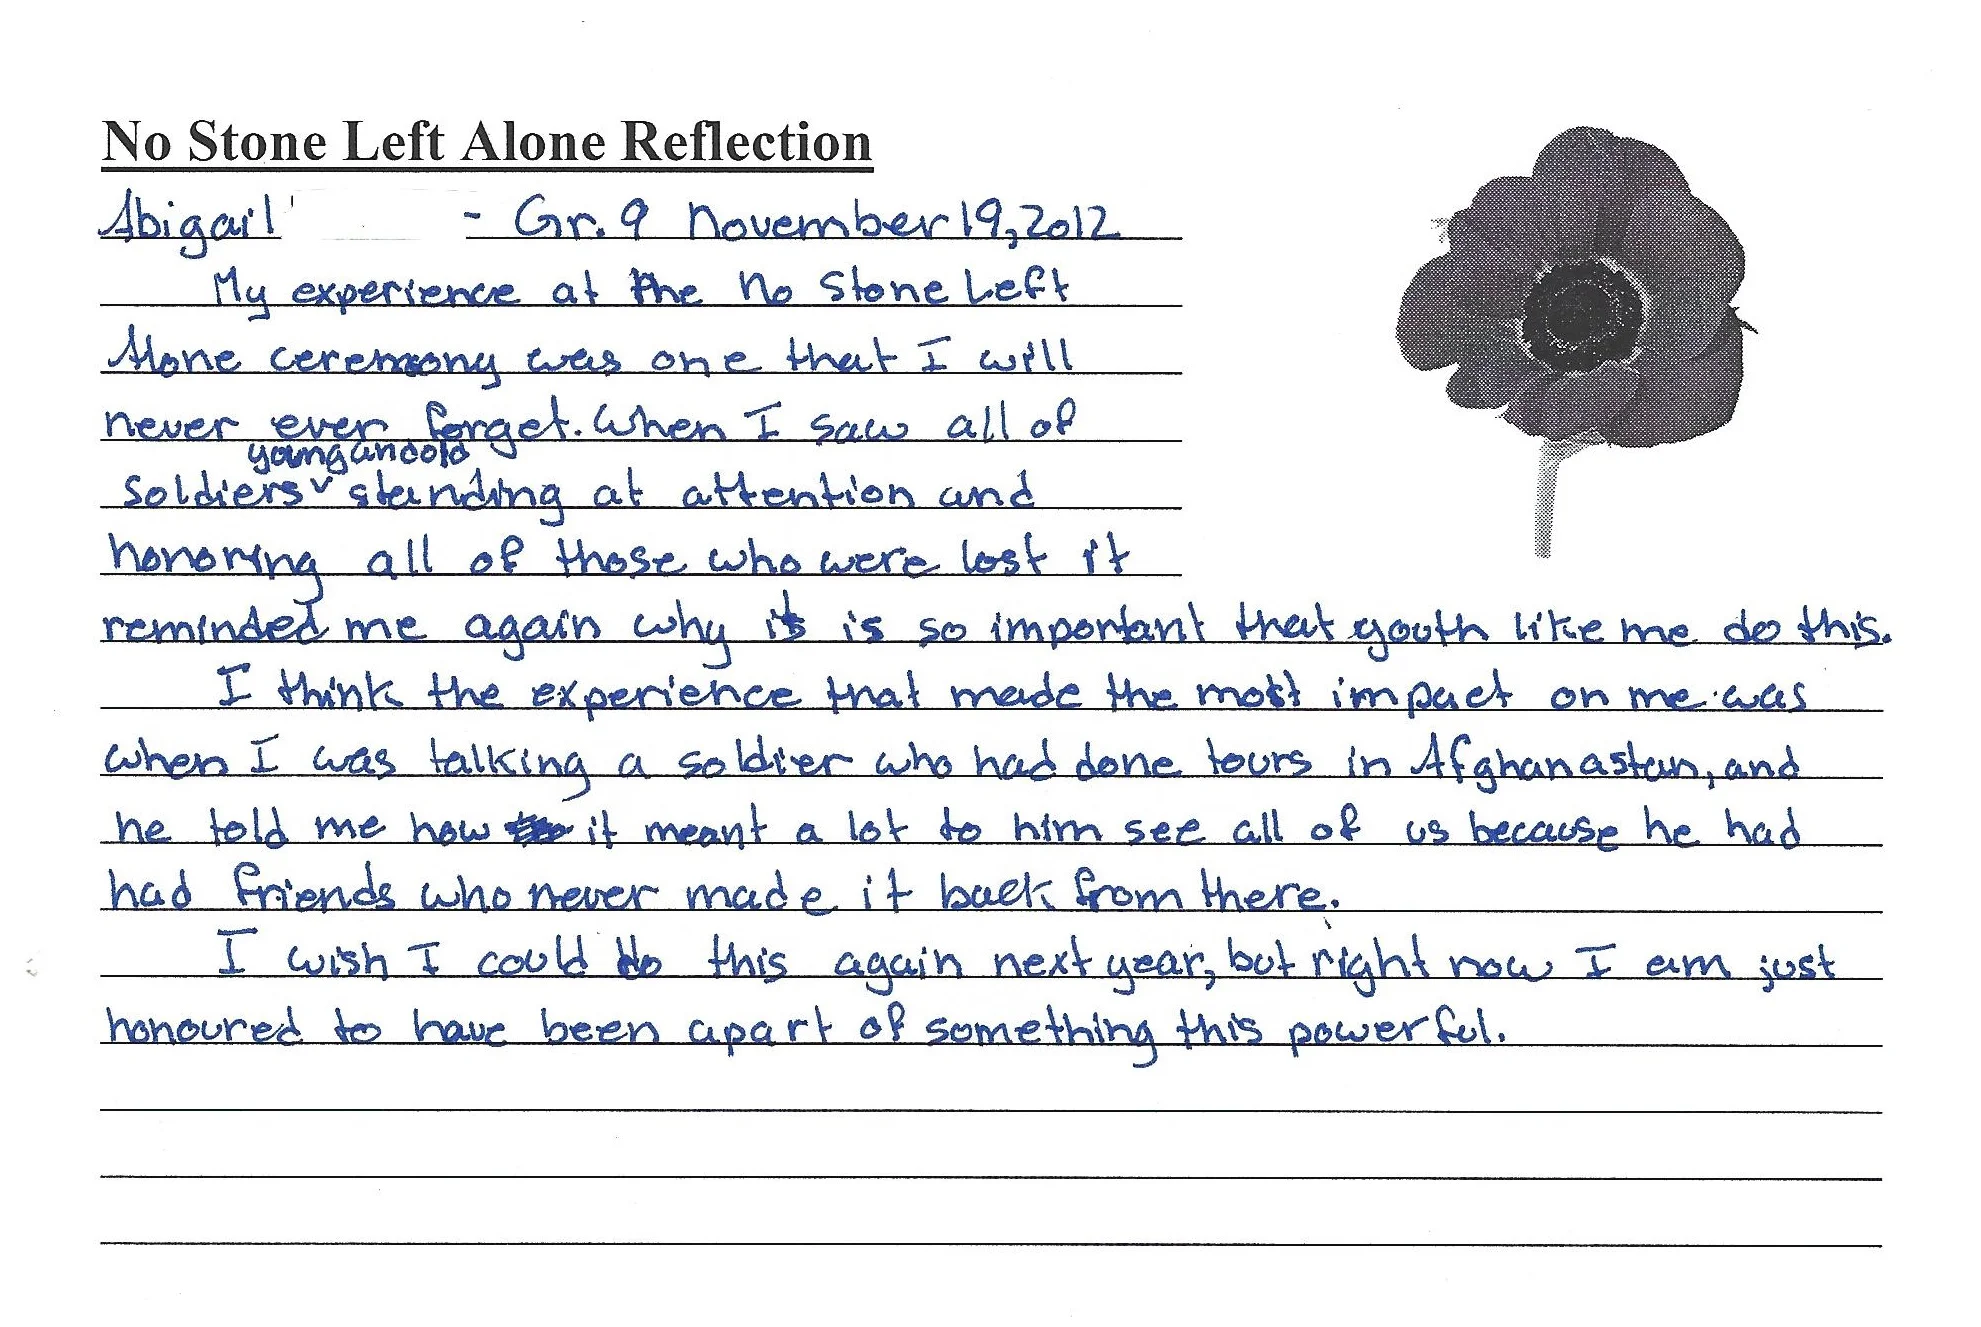 No Stone Left Alone Reflection
Abigail - Gr. 9 November 19, 2012
My experience at the No Stone Left
Alone ceremony was one that I will
never ever forget. When I saw all of
young and old
soldiers ˅ standing at attention and
honoring all of those who were lost it
reminded me again why it is so important that youth like me do this.
I think the experience that made the most impact on me was
when I was talking a soldier who had done tours in Afghanastan, and
he told me how it meant a lot to him see all of us because he had
had friends who never made it back from there.
I wish I could do this again next year, but right now I am just
honoured to have been apart of something this powerful.